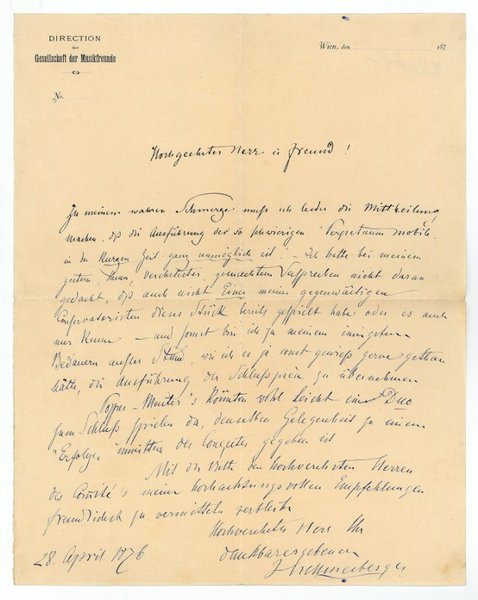 DIRECTION
der
Gesellschaft der Musikfreunde
Wien, den 187
No.
Hochgeehrter Herr u Freund!
Zu meinem wahren Schmerze muß ich leider die Mittheilung
machen, daß die Ausführung des so schwierigen Perpetuum mobile
in der kurzen Zeit ganz unmöglich ist – Ich hatte bei meinem
Ihnen, gemachten Versprechen nicht daran
gedacht, daß auch nicht Einer meiner gegenwärtigen
Conservatoristen dieses Stück bereits gespielt habe oder es auch
nur kenne – und somit bin ich zu meinem innigsten
Bedauern außer Stand, wie ich es ja sonst gewiß gerne gethan
hätte, die Ausführung der zu übernehmen
Popper-Menter's könnten wohl leicht ein Duo
zum Schluß spielen da, denselben Gelegenheit zu einem
"Erfolge" inmitten des gegeben ist
Mit der Bitte den hochverehrten Herren
des Comité's meine hochachtungsvollen Empfehlungen
freundlichst zu vermitteln verbleibe
Hochverehrter Herr Ihr
dankbarergebener
JHellmesberger
28. April 1876